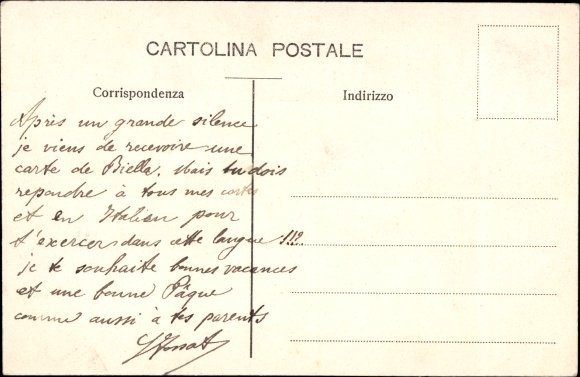 CARTOLINA POSTALE
Corrispondenza
Indirizzo
Après un grande silence
je viens de recevoire une
carte de Biella. Mais tu dois
repondre à tous mes cartes
et en Italien pour
t'exercer dans cette langue!!!
je te souhaite bonnes vacances
et une bonne Pâque
comme aussi à tes parents